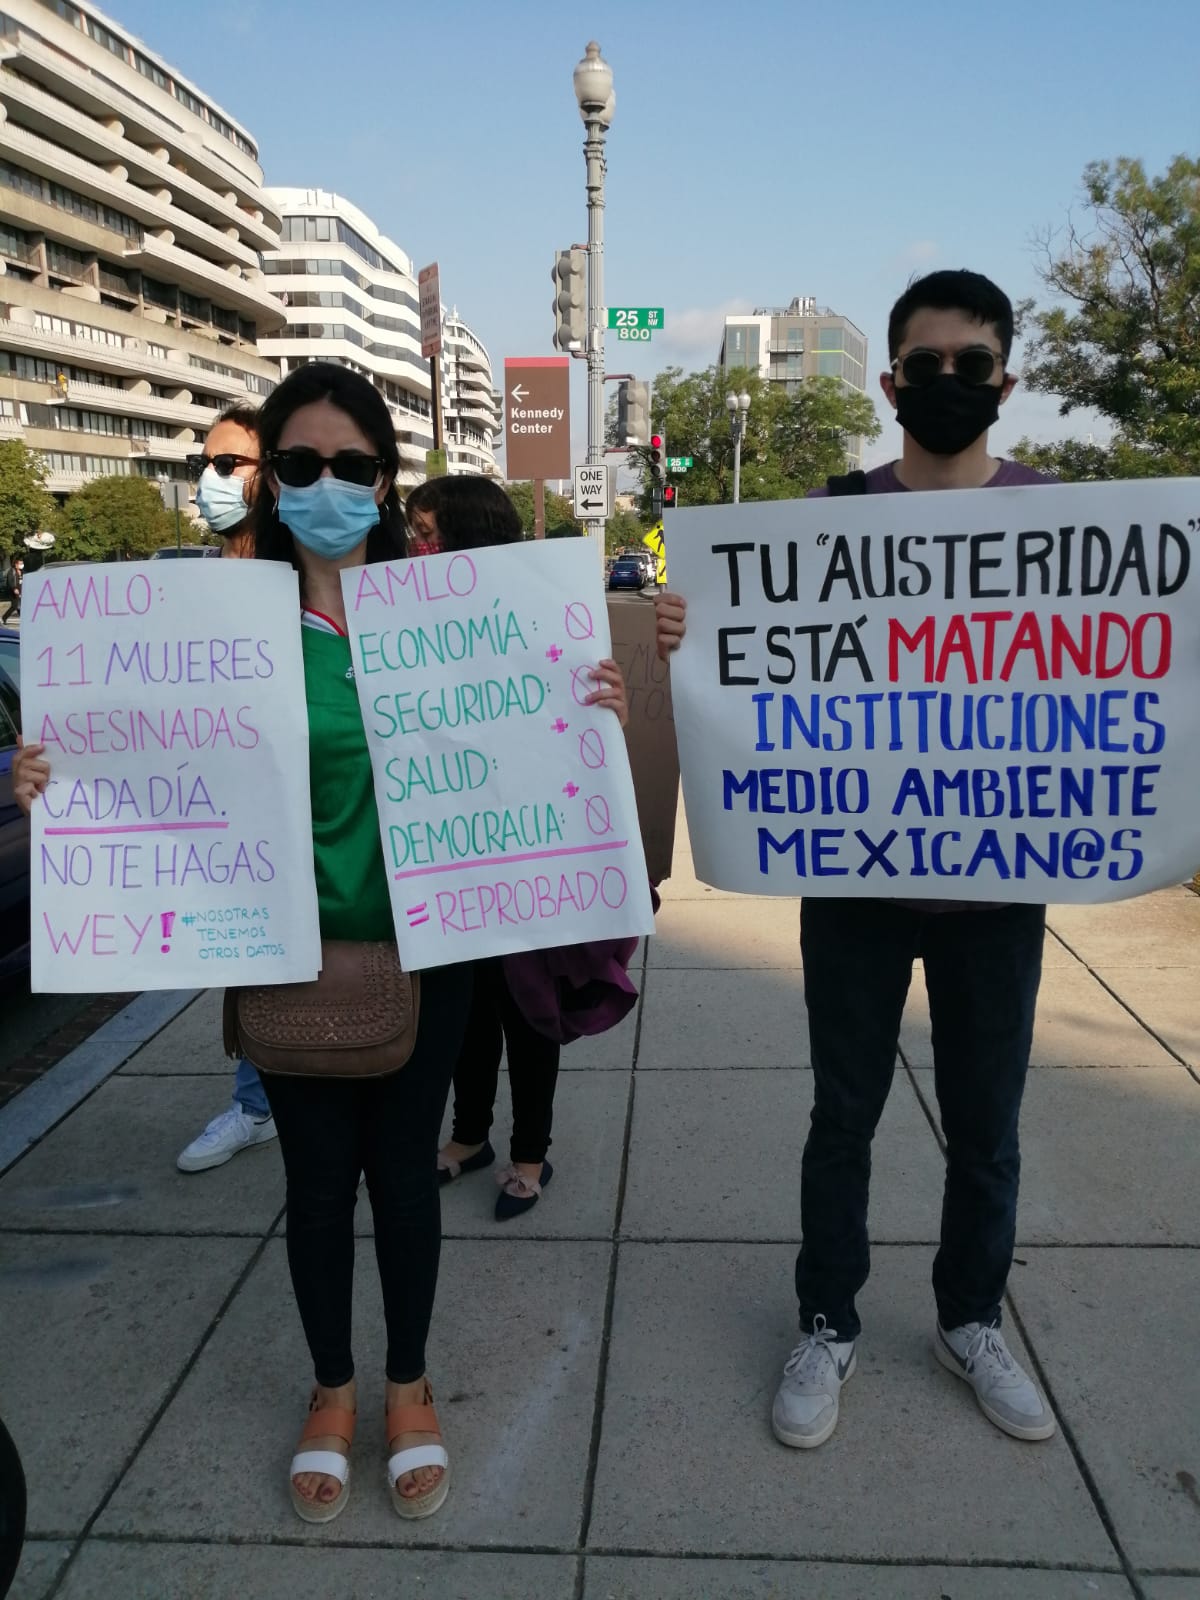 25 ST NW
800
←
Kennedy
Center
ONE
WAY
25 S
800
AMLO:
11 MUJERES
ASESINADAS
CADA DÍA.
NO TE HAGAS
WEY!
#NOSOTRAS
TENEMOS
OTROS DATOS
AMLO
ECONOMÍA: 0
+
SEGURIDAD: 0
+
SALUD: 0
+
DEMOCRACIA: 0
= REPROBADO
TU "AUSTERIDAD"
ESTÁ MATANDO
INSTITUCIONES
MEDIO AMBIENTE
MEXICAN@S